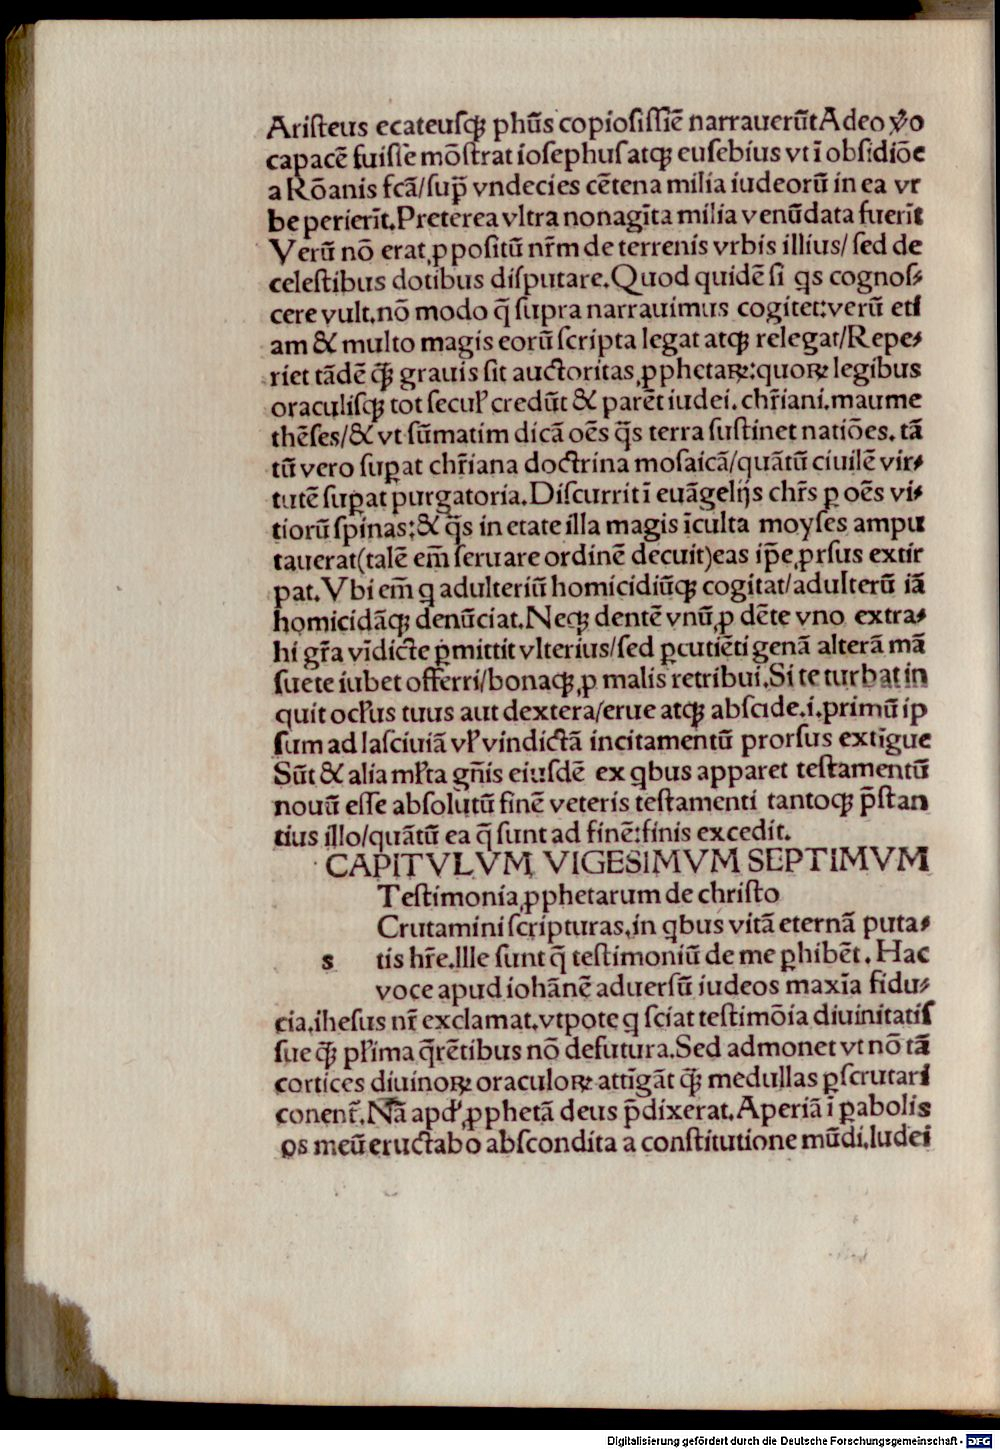 Ariſteus ecateuſqꝫ phūs copioſiſſīe narrauerūt Adeo v̾o
capacē fuiſſe mōſtrat ioſephus atqꝫ euſebius vt ī obſidiōe
a Rōanis fcā/ſup̄ vndecies cētena milia iudeorū in ea vr
be perierīt. Preterea vltra nonagīta milia venūdata fuerīt
Verū nō erat ꝓpoſitū nr̄m de terrenis vrbis illius/ ſed de
celeſtibus dotibus diſputare. Quod quidē ſi qs cognoſ⸗
cere vult. nō modo q̄ ſupra narrauimus cogitet: verū eti
am & multo magis eorū ſcripta legat atqꝫ relegat/ Repe⸗
riet tādē q̄ꝫ grauis ſit auctoritas ꝓphetaꝝ: quoꝝ legibus
oraculiſqꝫ tot ſecul̕ credūt & parēt iudei. chr̄iani. maume
thēſes/& vt ſūmatim dicā oēs q̄s terra ſuſtinet natiōes. tā
tū vero ſuꝑat chr̄iana doctrina moſaicā/quātū ciuilē vir⸗
tutē ſuꝑat purgatoria. Diſcurrit ī euāgelijs chr̄s ꝑ oēs vi⸗
tiorū ſpinas: & q̄s in etate illa magis īculta moyſes ampu
tauerat(talē em̄ ſeruare ordinē decuit)eas ip̄e ꝓrſus extir
pat. Vbi em̄ q adulteriū homicidiūqꝫ cogitat/adulterū iā
homicidāqꝫ denūciat. Neqꝫ dentē vnū ꝓ dēte vno extra⸗
hi gr̄a vīdicte ꝑmittit vlterius/ſed ꝑcutiēti genā alterā mā
ſuete iubet offerri/bonaqꝫ ꝓ malis retribui. Si te turbat in
quit ocl̕us tuus aut dextera/erue atqꝫ abſcide. i. primū ip
ſum ad laſciuiā vl̕ vindictā incitamentū prorſus extīgue
Sūt & alia ml̕ta gn̄is eiuſdē ex qbus apparet teſtamentū
nouū eſſe abſolutū finē veteris teſtamenti tantoqꝫ p̄ſtan
tius illo/quātū ea q̄ ſunt ad finē: finis excedit.
CAPITVLVM VIGESIMVM SEPTIMVM
Teſtimonia ꝓphetarum de chriſto
Crutamini ſcripturas, in qbus vitā eternā puta⸗
s tis hr̄e. Ille ſunt q̄ teſtimoniū de me ꝑhibēt. Hac
voce apud iohānē aduerſū iudeos maxīa fidu⸗
cia. iheſus nr̄ exclamat. vtpote q ſciat teſtimōia diuinitatiſ
ſue q̄ꝫ pl̕ima q̄rētibus nō defutura. Sed admonet vt nō tā
cortices diuinoꝝ oraculoꝝ attīgāt q̄ꝫ medullas ꝑſcrutari
conent̄. Nā apd̕ ꝓphetā deus p̄dixerat. Aperiā ī ꝑabolis
os meū eructabo abſcondita a conſtitutione mūdi. Iudei
Digitalisierung gefördert durch die Deutsche Forschungsgemeinschaft - DFG